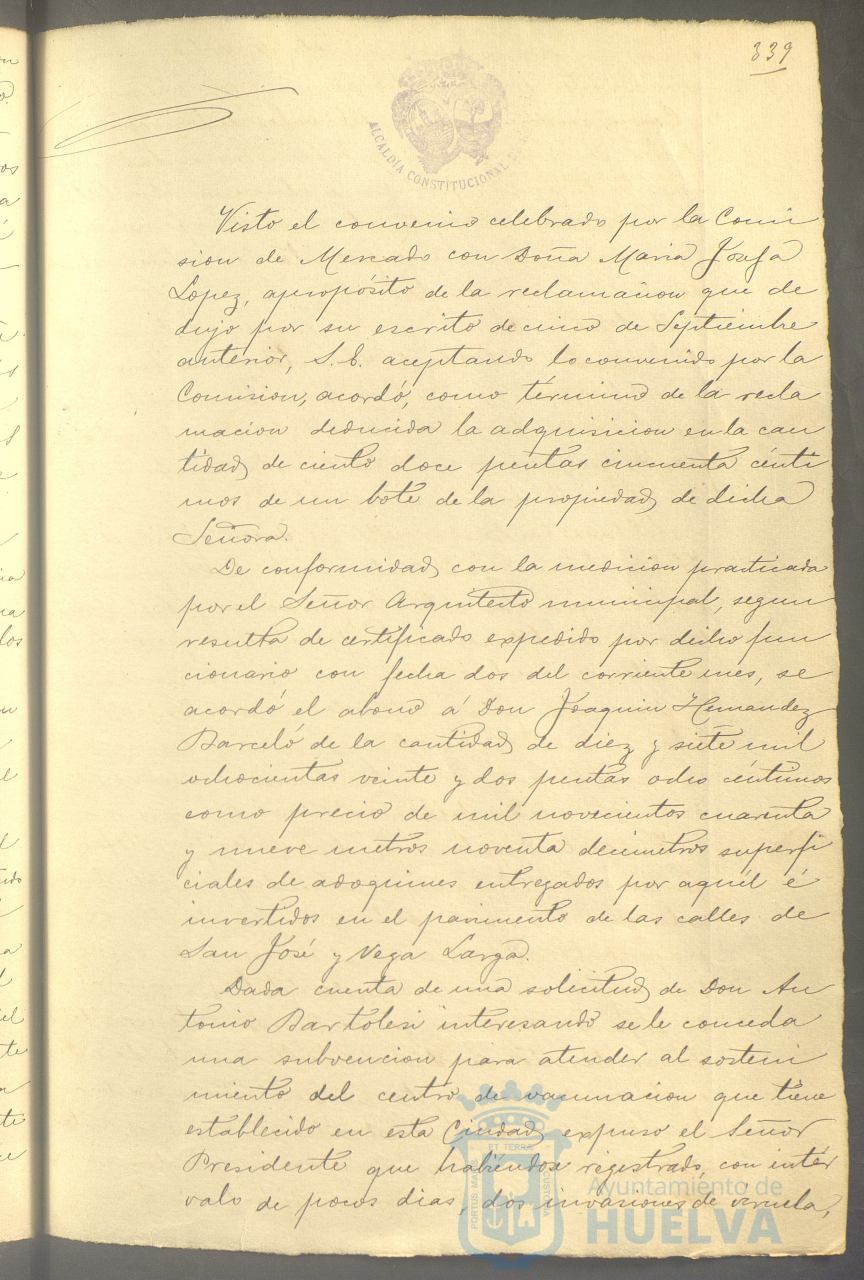 339
ALCALDÍA CONSTITUCIONAL DE
Visto el convenio celebrado por la Comi
sion de Mercado con Doña Maria Josefa
Lopez, apropósito de la reclamacion que de
dujo por su escrito de cinco de Septiembre
anterior, S. E. aceptando lo convenido por la
Comision, acordó, como término de la recla
macion deducida la adquisicion en la can
tidad de ciento doce pesetas cincuenta cénti
mos de un bote de la propiedad de dicha
Señora.
De conformidad con la medicion practicada
por el Señor Arquitecto municipal, segun
resulta de certificado expedido por dicho fun
cionario con fecha dos del corriente mes, se
acordó el abono á Don Joaquin Hernandez
Barceló de la cantidad de diez y siete mil
ochocientas veinte y dos pesetas ocho céntimos
como precio de mil novecientos cuarenta
y nueve metros noventa decímetros superfi
ciales de adoquines entregados por aquél é
invertidos en el pavimento de las calles de
San José y Vega Larga.
Dada cuenta de una solicitud de Don An
tonio Bartolesi interesando se le conceda
una subvencion para atender al sosteni
miento del centro de vacunacion que tiene
establecido en esta Ciudad expuso el Señor
Presidente que habiéndose registrado, con intér
valo de pocos dias, dos invasiones de viruela,
PORTUS MARIS ET TERRAE CUSTODIA
Ayuntamiento de
HUELVA